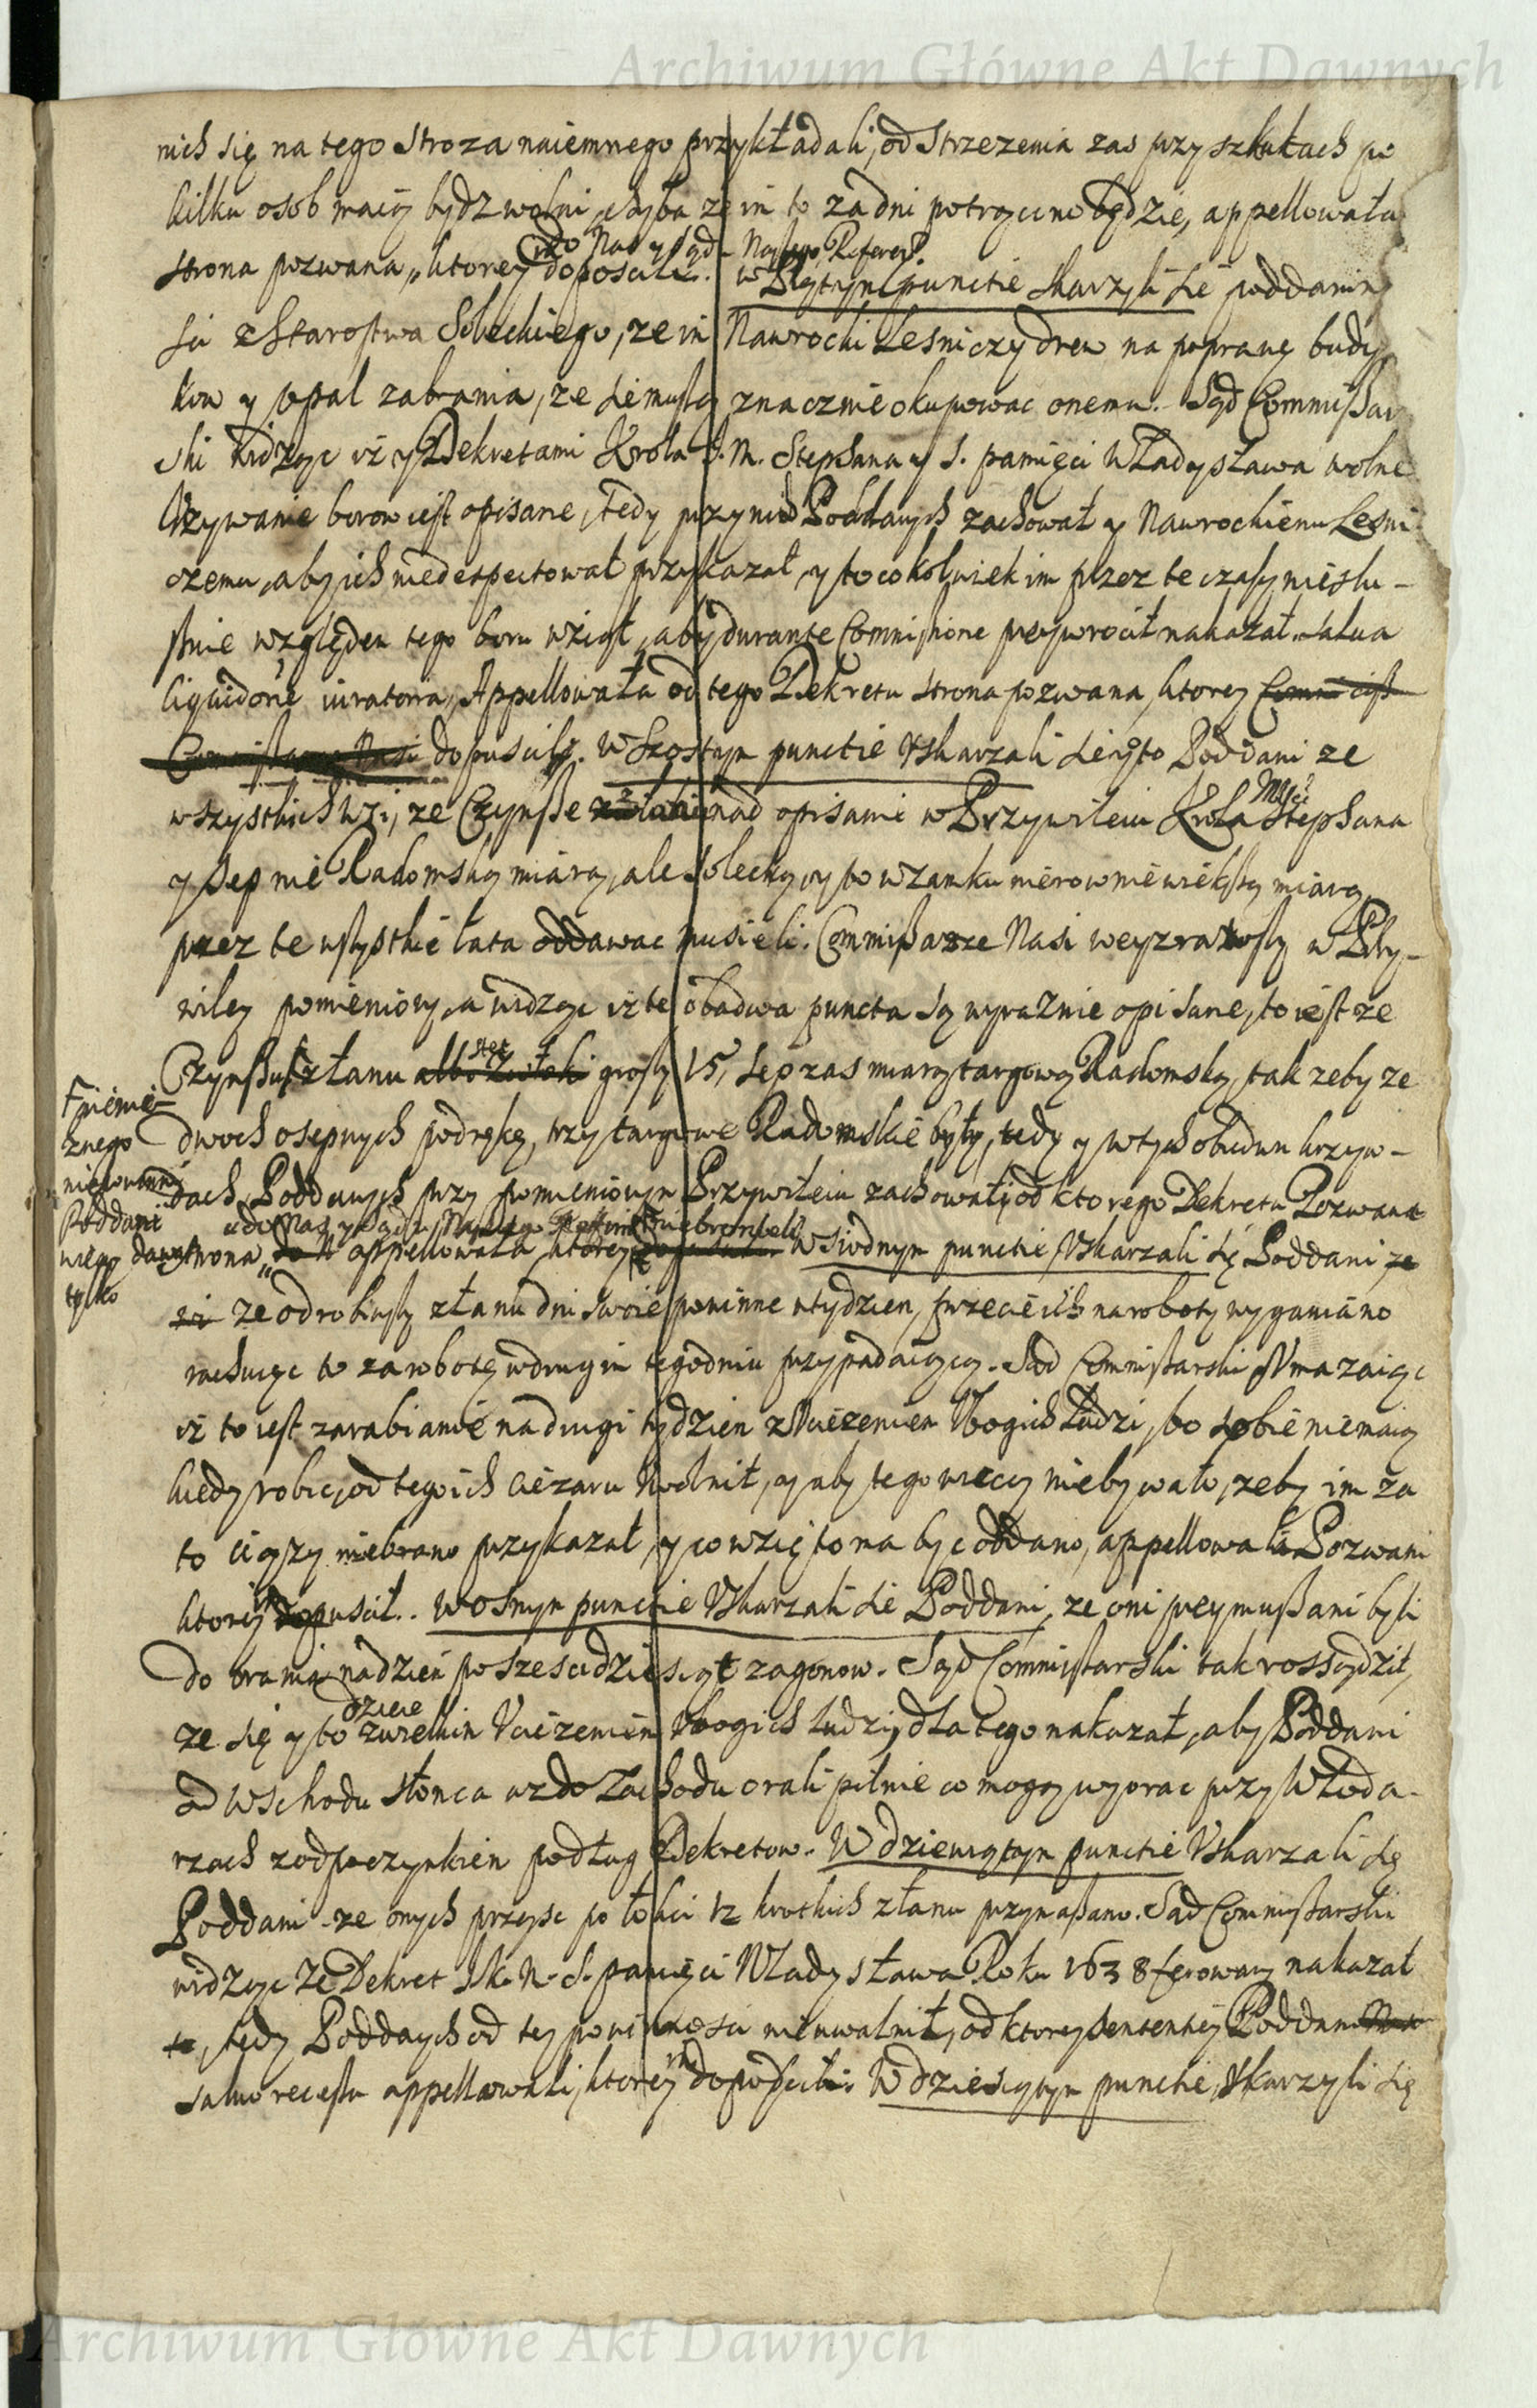 Archiwum Główne Akt Dawnych
nich się na tego Stroza naiemnego przykładali, od Strzezenia zas przy szkutach po
kilku osob maią bydz wolni, chyba ze im to za dni potrącono będzie, appellowała
do Nas y Sądu Naszego Referen.
strona pozwana, ktorey doposcili. w Piątym punctie skarzyli sie poddani
sci z Starostwa Soleckiego, ze im Nawrocki Lesniczy drew na poprawę budyn
kow y opał zabrania, ze sie muszą znacznie okupowac onemu. Sąd Commissar
ski widząc iz y Dekretami Krola J. M. Stephana y S. pamięci Władysława wolne
Uzywanie borow iest opisane, tedy przy nich Poddanych zachował y Nawrockiemu Lesni
czemu, aby ich niedespectował przykazał, y to cokolwiek im przez te czasy nieslu-
sznie względem tego boru wziął, aby durante Commissione przywrocił nakazał. Salua
liquidõne iuratoria, Appellowała od tego Dekretu strona pozwana, ktorey
dopuscili. W Szostym punctie Uskarzali sie Poddani ze
wszystkich Wsi, ze Czynsze nad opisanie w Przywileiu Krola Mści Stephana
y sep nie Radomską miarą, ale Solecką, y to w zamku nierownie wiekszą miarą
przez te wszystkie lata oddawac musieli. Commissarze Nasi weyzrawszy w Przy-
wiley pomieniony, a widząc iz te obadwa puncta są wyraznie opisane, to iest ze
Czynszu z łanu albo groszy 15, Sep zas miarą targową Radomską, tak zeby ze
dwoch osepnych pod rękę, trzy targowe Radomskie były, tedy y w tych obudwu krzyw-
znego
dach Poddanych przy pomienionym Przywileiu zachowali, od ktorego Dekretu Pozwana
Poddani
strona do Nas y Sądu Naszego appellowała, ktorey niebronieli W siodmym punctie Uskarzali się Poddani
tylko
ze odrobiwszy z łanu dni swoie powinne w tydzien, przecie ich na roboty wyganiano
rachuiąc to za robotę w drugim tegodniu przypadaiącą. Sąd Commissarski Uwazaiąc
iz to iest zarabianie na drugi tydzien z Uciezeniem Ubogich Ludzi, bo sobie nie maią
kiedy robic, od tego ich ciezaru Uwolnił, y aby tego wiecy nie bywało, zeby im za
to ciązy niebrano przykazał, y co wzięto ma byc oddano, appellowali Pozwani
ktorey dopuscił. W osmym punctie Uskarzali sie Poddani, ze oni przymuszani byli
do orania na dzien po szescidziesiąt zagonow. Sąd Commissarski tak rossądził,
dzieie
ze się y to z wielkim Uciezeniem Ubogich ludzi, dla tego nakazał, aby Poddani
od wschodu słonca az do Zachodu orali pilnie co mogą wyorac przy Włoda-
rzach z odpoczynkiem podług Dekretow. W dziewiątym punctie Uskarzali się
Poddani ze onych przęsc po łokci 12 krotkich z łanu przymuszano. Sąd Commissarski
widząc ze Dekret J. K. M. S. pamięci Władysława Roku 1638 ferowany nakazał
to, tedy Poddanych od tey powinnosci nieuwalnił, od ktorey sentenciey Poddani
saluo recessu appellowali, ktorey im dopuscili. W dziesiątym punctie, Uskarzyli się
Archiwum Główne Akt Dawnych